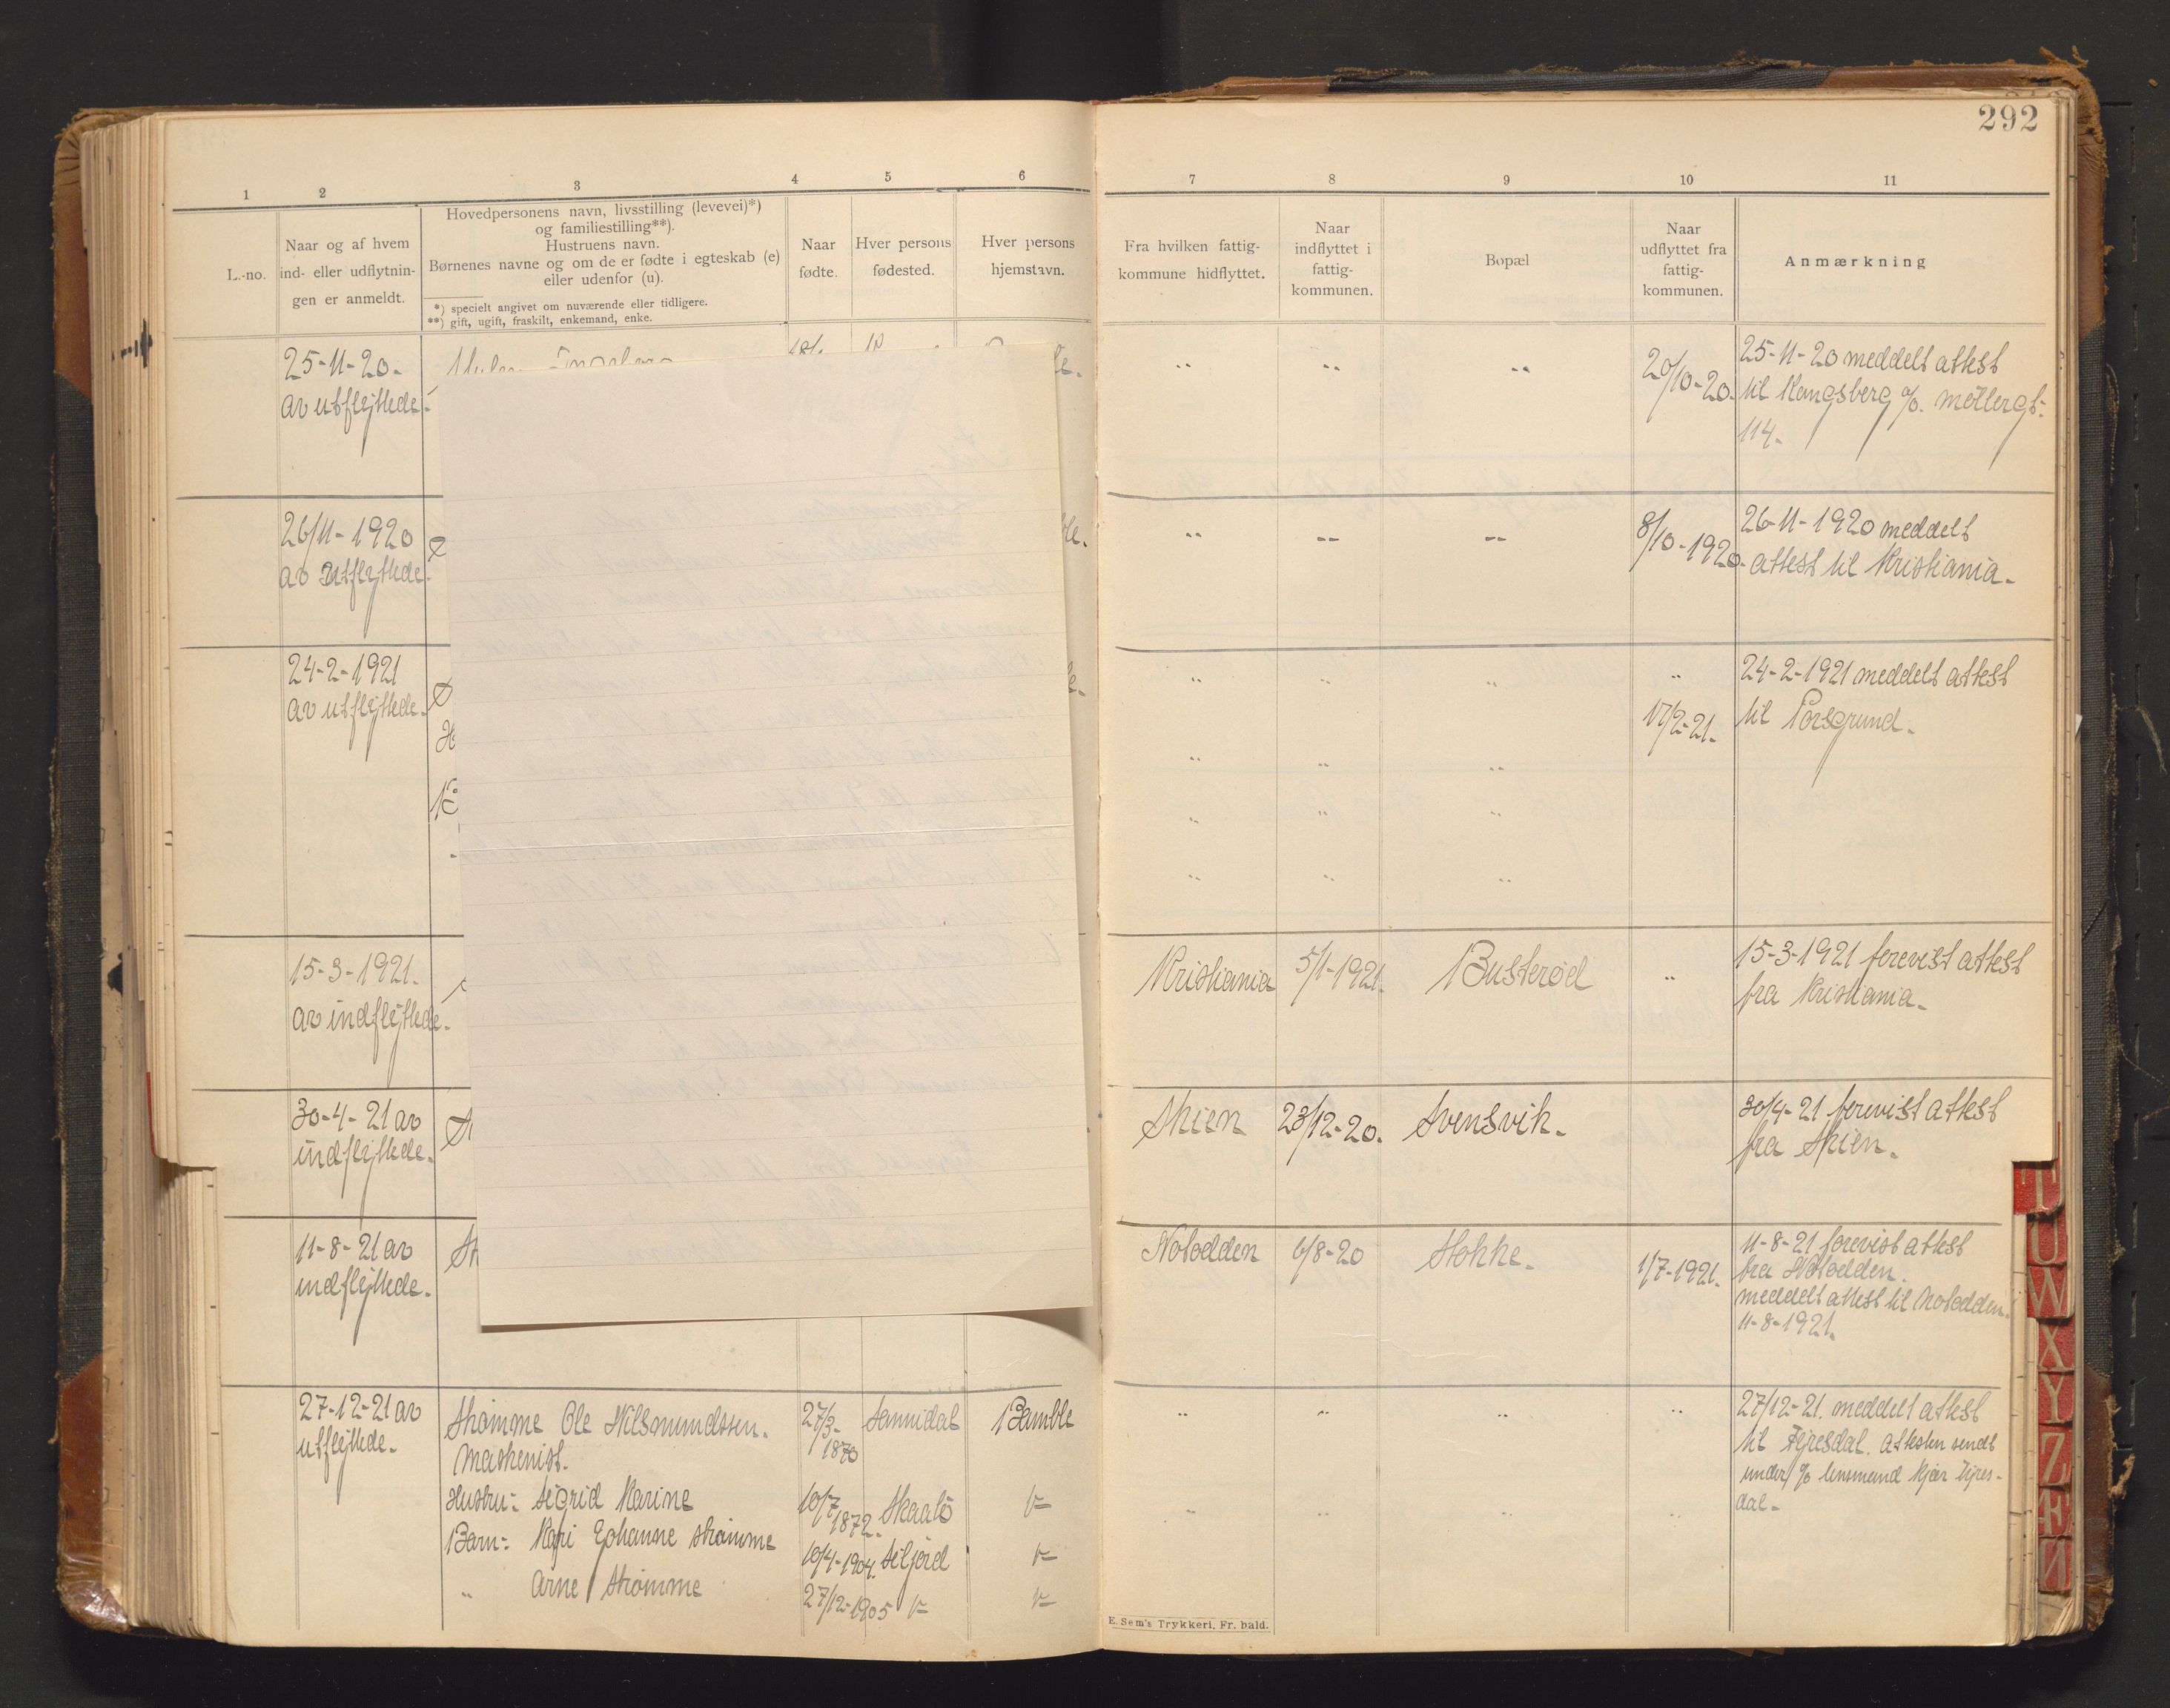 292
1 2 3 4 5 6 7 8 9 10 11
L.-no.
Naar og af hvem
ind- eller udflytnin-
gen er anmeldt.
Hovedpersonens navn, livsstilling (levevei)*)
og familiestilling**).
Hustruens navn.
Børnenes navne og om de er fødte i egteskab (e)
eller udenfor (u).
*) specielt angivet om nuværende eller tidligere.
**) gift, ugift, fraskilt, enkemand, enke.
Naar
fødte.
Hver persons
fødested.
Hver persons
hjemstavn.
Fra hvilken fattig-
kommune hidflyttet.
Naar
indflyttet i
fattig-
kommunen.
Bopæl
Naar
udflyttet fra
fattig-
kommunen.
Anmærkning
25-11-20.
av utflyttede.
" " "
20/10-20.
25-11-20 meddelt attest
til Kongsberg %. Møllergt.
114.
26/11-1920
av utflyttede.
" " "
8/10-1920.
26-11-1920 meddelt
attest til Kristiania.
24-2-1921
av utflyttede.
" " " "
17/2-21.
24-2-1921 meddelt attest
til Porsgrund.
" " "
" " "
" " "
15-3-1921.
av indflyttede.
Kristiania 5/1-1921. Busterød "
15-3-1921 forevist attest
fra Kristiania.
30-4-21 av
indflyttede.
Skien 23/12-20. Svensvik.
30/4-21 forevist attest
fra Skien.
11-8-21 av
indflyttede.
St
Notodden 6/8-20 Stokke. 1/7-1921.
11-8-21 forevist attest
fra Notodden.
meddelt attest til Notodden.
11-8-1921.
27-12-21 av
utflyttede.
Strømme Ole Nilsmundssen. 27/3-1870 Sannidal Bamble
Maskenist.
Hustru: Sigrid Karine 10/7 1872. Skaatø "
Barn: Kari Johanne Strømme 10/4-1904. Seljord "
" Arne Strømme 27/12-1905 " "
" " " "
27/12-21. meddelt attest
til Fyresdal. Attesten sendt
under % lensmand Kjær Fyres-
dal.
" " " "
E. Sem's Trykkeri, Fr. hald.
T
U
W
X
Y
Z
Æ
Ø